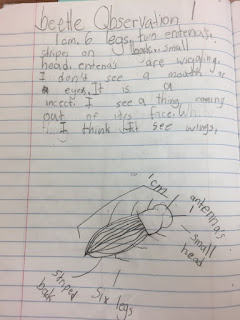 beetle Observation 1
1cm. 6 legs, two entena's,
stripes on back, small
head, entena's are wiggling.
I don't see a mouth or
eyes. It is a
incect. I see a thing coming
out of it's face.
I think I see wings,
1cm
antenna's
small
head
striped
back
six legs